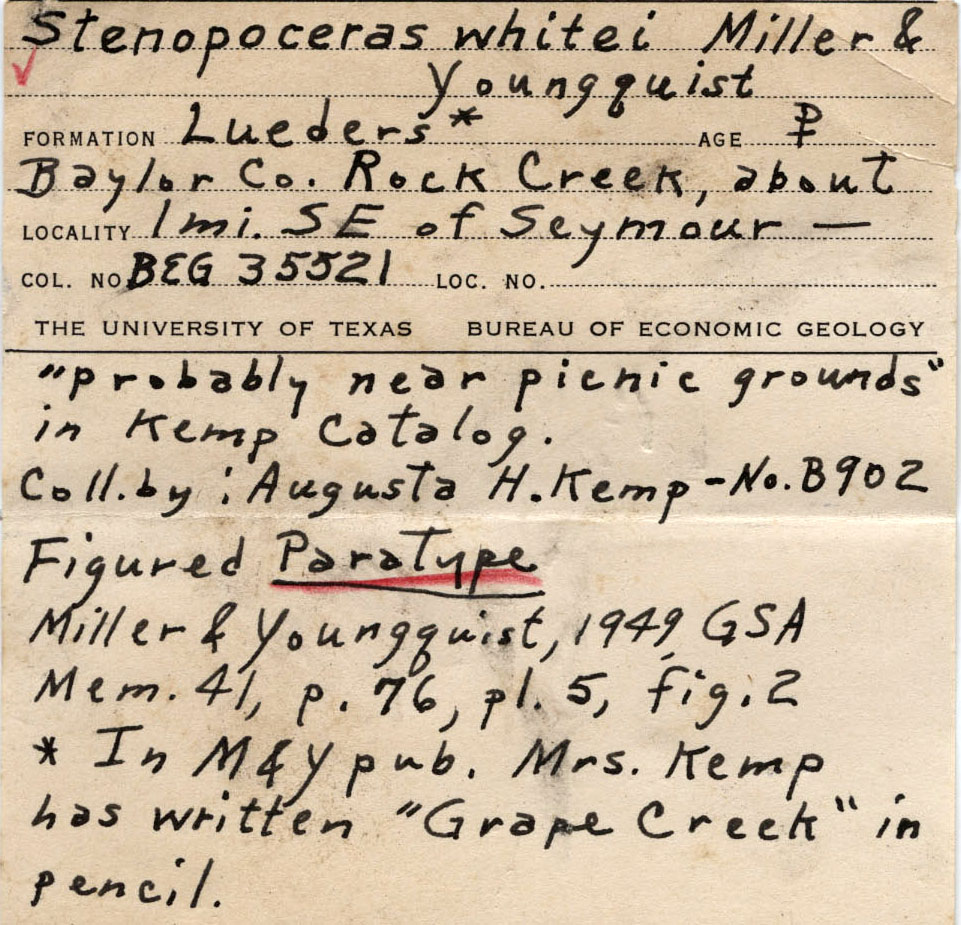 Stenopoceras whitei Miller &
Youngquist
FORMATION Lueders* AGE P
Baylor Co. Rock Creek, about
LOCALITY 1 mi. SE of Seymour —
COL. NO. BEG 35521 LOC. NO.
THE UNIVERSITY OF TEXAS BUREAU OF ECONOMIC GEOLOGY
"probably near picnic grounds"
in Kemp Catalog.
Coll. by : Augusta H. Kemp - No. B902
Figured Paratype
Miller & Youngquist, 1949, GSA
Mem. 41, p. 76, pl. 5, fig. 2
* In M & Y pub. Mrs. Kemp
has written "Grape Creek" in
pencil.